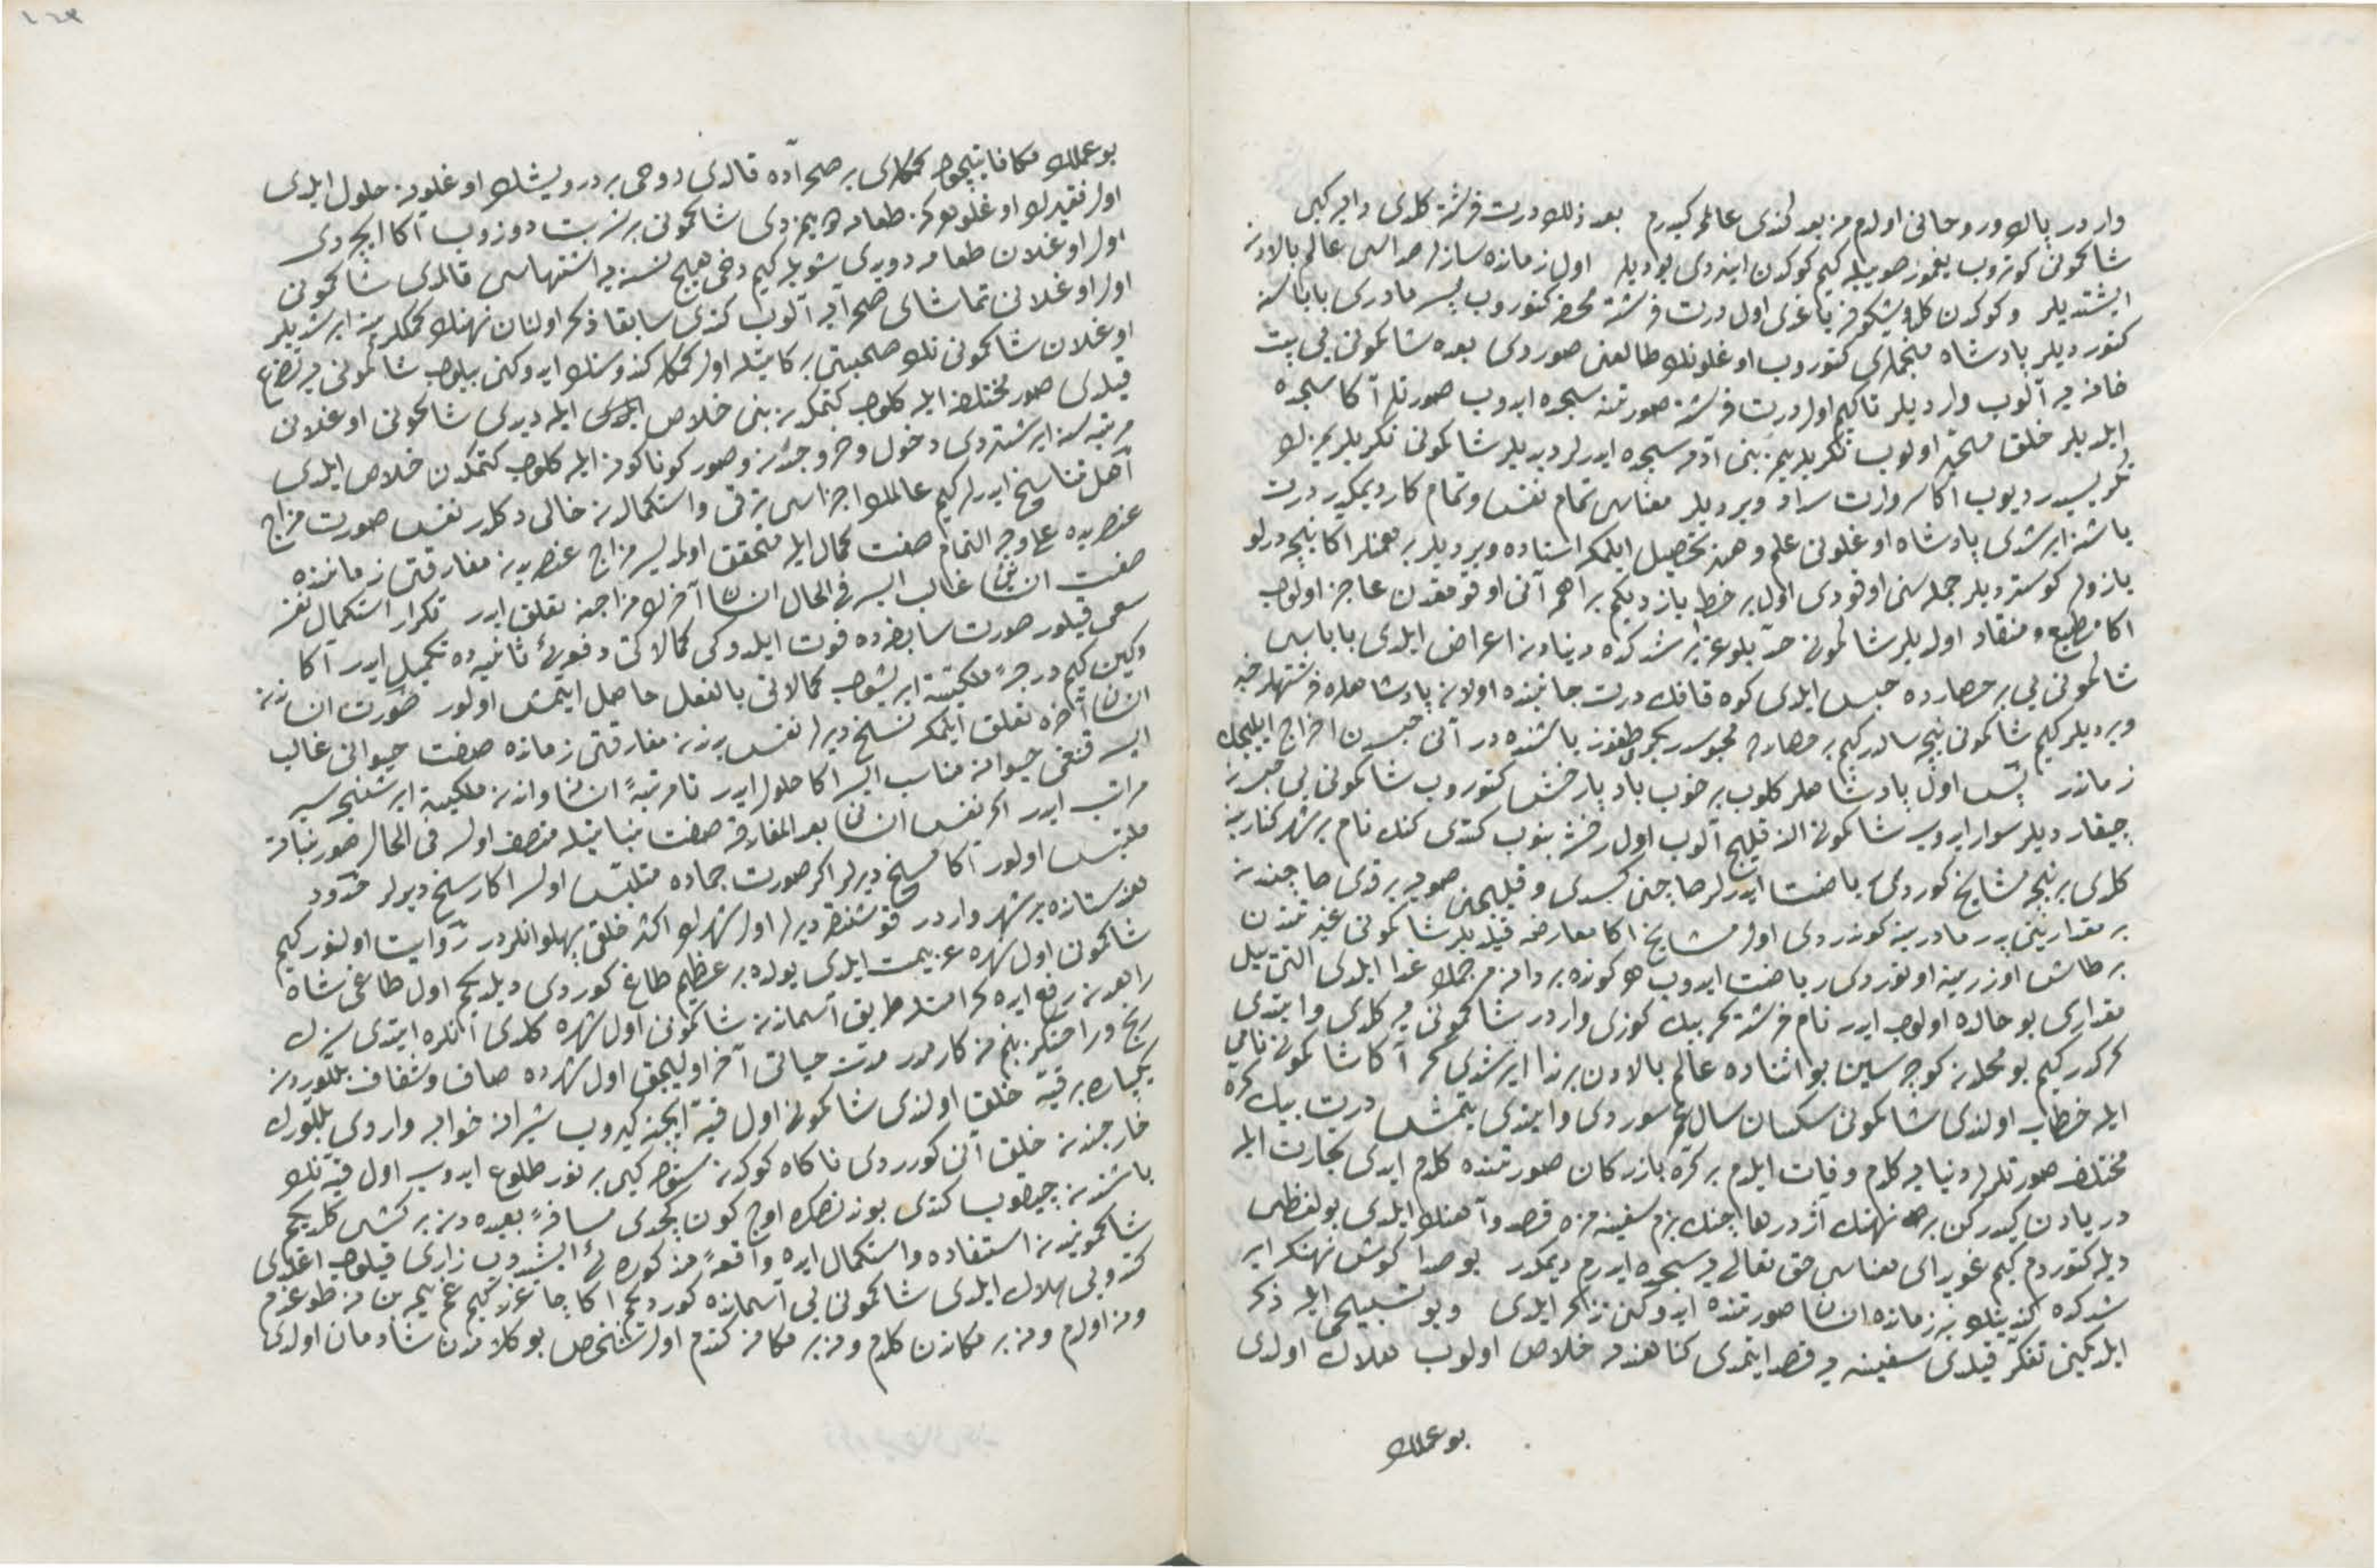 واردر پاك و روحانی اولدم من بعد كندی عالمه كیدرم بعد ذلك درت فرشته كلدی دایه كبی
شاكمونی كوتروب یغمور صوییله كیم كوكدن ایندی یودیلر اول زمانده سازلر صداسی عالم بالادن
ایشتدیلر و كوكدن كل و شكوفه یاغدی اول درت فرشته محضر كتوروب پسر مادری باباسنه
كتوردیلر پادشاه منجملری كتوروب اوغلونك طالعنی صوردی بعده شاكمونی یی بت
خانه یه آلوب واردیلر تاكیم اول درت فرشته صورتنه سجده ایدوب صورتلر آكا سجده
ایلدیلر خلق متحیر اولوب تكریلریمز بنی آدمه سجده ایدرلر دیدیلر شاكمونی تكریلریمزك
تكریسیدر دیوب آكا سروارت سداد ویردیلر معناسی تمام نفس و تمام كار دیمكدر درت
یاشنه ایرشدی پادشاه اوغلونی علم و هنر تحصیل ایلمكه استاده ویردیلر برهمنلر آكا نیجه درلو
یازولر كوستردیلر جمله سنی اوقودی اول بر خط یازدیكم براهمه آنی اوقومقدن عاجز اولوب
آكا مطیع و منقاد اولدیلر شاكمونی حد بلوغه ایرشدكده دنیادن اعراض ایلدی باباسی
شاكمونی یی بر حصارده حبس ایلدی كوه قافك درت جانبنده اولان پادشاهلره فرشتهلر خبر
ویردیلر كیم شاكمونی نیجه سالدر كیم بر حصارده محبوسدر یكرمی طقوز یاشنده در آنی حبسدن اخراج ایلیجك
زماندر پس اول پادشاهلر كلوب بر خوب باد پا رخش كتوروب شاكمونی یی حبسدن
چیقاردیلر سوار ایدوب شاكمونی النه قلیج آلوب اول رخشه بنوب كتدی كنك نام بر نهر كنارینه
كلدی بر نیجه مشایخ كوردی ریاضت ایدرلر صاچنی كسدی و قلیجنی صویه براقدی صاچندن
بر مقدارینی پدر مادرینه كوندردی اول مشایخ آكا معارضه قیلدیلر شاكمونی غیرتندن
بر طاش اوزرینه اوتوردی ریاضت ایدوب هر كونده بر دانه مرجمك غدا ایلدی التی ییل
مقداری بو حالده اولوب ایدر نام فرشته كه بیك كوزی واردر شاكمونی یه كلدی و ایتدی
كركدر كیم بو محلدن كوچرسین بو اثناده عالم بالادن بر ندا ایرشدی كه آكا شاكمونی نامی
ایله خطاب اولندی شاكمونی سكسان سال عمر سوردی و ایتدی یتمش درت بیك كره
مختلف صورتلرله دنیایه كلدم وفات ایلدم بر كره بازركان صورتنده كلدم ایدی تجارت ایله
دریادن كیدركن بر نهنك آژدرها چنك بزم سفینه مزه قصد و آهنك ایلدی بو لفظی
دیله كتوردم كیم غورای معناسی حق تعالی یه سجده ایدرم دیمكدر بو صدا كوش نهنكه ایر
شدكده كندینك بر زمانده انسان صورتنده ایدوكن تذكر ایلدی و بو تسبیحی ایله ذكر
ایلدیكین تفكر قیلدی سفینه یه قصد ایتمدی كناهندن خلاص اولوب هلاك اولدی
بو عملك
بو عملك مكافاتیچون كمكلری بر صحراده قالدی روحی بر درویشك اوغلونه حلول ایلدی
اول فقیرك اوغلو هركز طعامه طویمزدی شاكمونی بر شربت دوزوب آكا ایچردی
اول اوغلان طعامه دویدی شویله كیم دخی هیچ نسنه یه اشتهاسی قالمدی شاكمونی
اول اوغلانی تماشای صحرایه آلوب كتدی سابقا ذكر اولنان نهنك كمكلرینه ایرشدیلر
اوغلان شاكمونی نك صحبتی بركاتیله اول كمكلر كندوسنك ایدوكنی بیلوب شاكمونی یه تضرع
قیلدی صور مختلفه ایله كلوب كتمكدن بنی خلاص ایله دیدی شاكمونی اوغلانی
مرتبه سنه ایرشتردی دخول و خروجدن و صور كوناكون ایله كلوب كتمكدن خلاص ایلدی
اهل تناسخ ایدرلر كیم عالمك اجزاسی ترقی و استكمالدن خالی دكلدر نفس صورت مزاج
عنصریده علی وجه التمام صفت كمال ایله متحقق اولمدی ایسه مزاج عنصریدن مفارقتی زماننده
صفت انسانی غالب ایسه فی الحال انسان آخرك مزاجنه تعلق ایدر تكرار استكمال نفسه
سعی قیلور صورت سابقه ده فوت ایلدوكی كمالاتی دفعهٔ ثانیه ده تكمیل ایدر آكا
دكین كیم درجهٔ ملكیته ایریشوب كمالاتی بالفعل حاصل ایتمش اولور صورت انساندن
انسان آخره تعلق ایلمكه نسخ دیرلر نفس بدندن مفارقتی زمانده صفت حیوانی غالب
ایسه قنغی حیوانه مناسب ایسه آكا حلول ایدر تا مرتبهٔ انسان و اندن ملكیته ایرشنجه سیر
مراتب ایدر اكر نفس انسانی بعد المفارقه صفت نباتیله متصف اولسه فی الحال صور نباته
ملتبس اولور آكا فسخ دیرلر اكر صورت جماده متلبس اولسه آكا رسخ دیرلر حدود
هندستانده بر شهر واردر قوشنغر دیرلر اول شهرك اكثر خلقی پهلوانلردر روایت اولنور كیم
شاكمونی اول شهره عزیمت ایلدی یولده بر عظیم طاغ كوردی دیلدیكم اول طاغی شاه
راهدن رفع ایده كرامتله طریق آسماندن شاكمونی اول شهره كلدی آنلره ایتدی سزك
رنج و راحتكز بنم كارمدر مدت حیاتی آخر اولیجق اول شهرده صاف و شفاف بللوردن
یكپاره بر قبه خلق اولندی شاكمونی اول قبه ایچنه كیروب شیرانه خوابه واردی بللورك
خارجندن خلق آنی كوردی ناكاه كوكدن ستون كبی بر نور طلوع ایدوب اول قبه نك
باشندن چیقوب كتدی بوندنصكره اوچ كون كچدی مسافهٔ بعیده دن بر كشی كلدیكم
شاكمونیدن استفاده و استكمال ایده واقعهٔ مذكوره یی ایشدوب زاری قیلوب اغلدی
كندویی هلاك ایلدی شاكمونی یی آسمانده كوردی كم آكا چاغرر كیم غم یمه بن نه طوغدم
و نه اولدم و نه بر مكاندن كلدم و نه بر مكانه كتدم اول شخص بو كلامدن شادمان اولدی